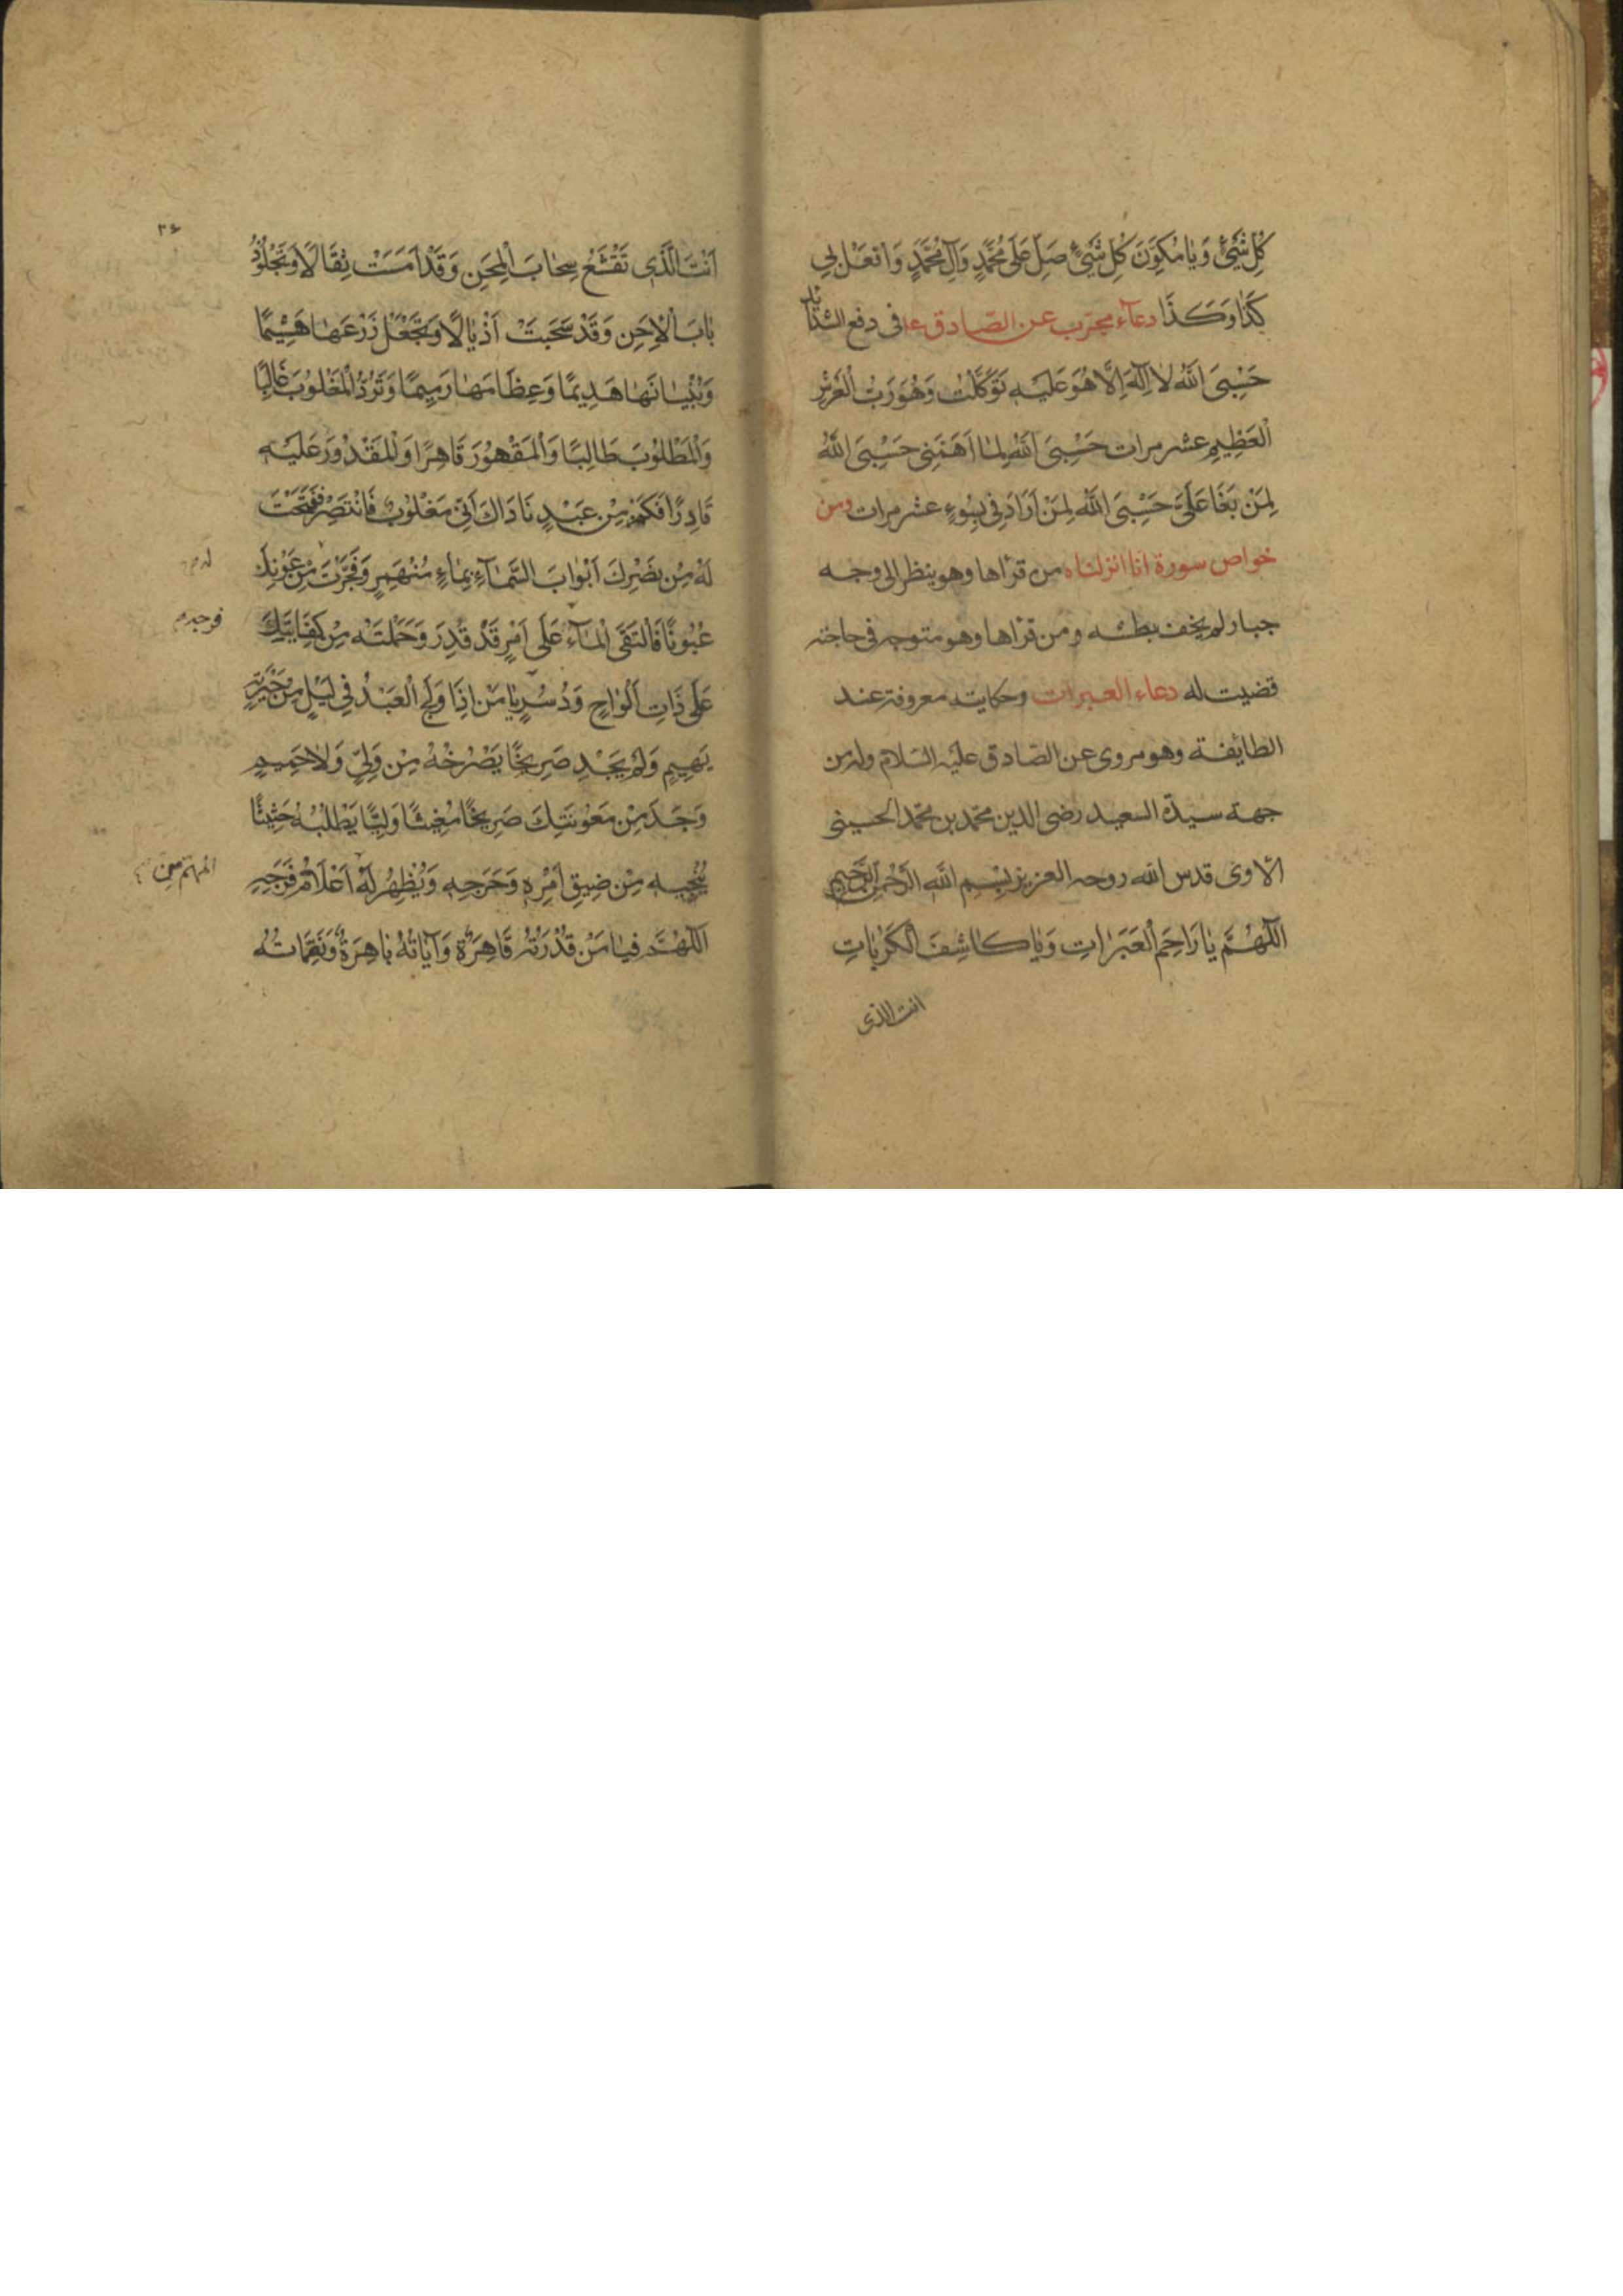 كُلِّ شَيْئٍ وَيَا مُكَوِّنَ كُلِّ شَيْئٍ صَلِّ عَلَى مُحَمَّدٍ وَآلِ مُحَمَّدٍ وَافْعَلْ بِي
كَذَا وَكَذَا دعآء مجرّب عن الصّادق ع في دفع الشدائد
حَسْبِيَ اللّهُ لا اِلٰهَ اِلَّا هُوَ عَلَيْهِ تَوَكَّلْتُ وَهُوَ رَبُّ الْعَرْشِ
الْعَظِيمِ عشر مرات حَسْبِيَ اللّهُ لِمَا اَهَمَّنِي حَسْبِيَ اللّهُ
لِمَنْ بَغَا عَلَيَّ حَسْبِيَ اللّهُ لِمَنْ اَرَادَنِي بِسُوءٍ عشر مرات ومن
خواص سورة انا انزلناه من قراها وهو ينظر الى وجه
جبار لم يخف بطشه ومن قراها وهو متوجه في حاجته
قضيت له دعاء العبرات وحكايته معروفة عند
الطايفة وهو مروى عن الصّادق عليه السّلام وله من
جهة سيدة السعيد رضى الدين محمّد بن محمّد الحسينى
الآوى قدس الله روحه العزيز بِسْمِ اللّهِ الرَّحْمٰنِ الرَّحِيمِ
اَللّهُمَّ يَا رَاحِمَ الْعَبَرَاتِ وَيَا كَاشِفَ الْكَرُبَاتِ
انت الذى
٢۶
اَنْتَ الَّذِى تَقْشَعُ سِحَابَ الْمِحَنِ وَقَدْ اَمْسَتْ ثِقَالًا وَتَجْلُوْ
ضَبَابَ الْاِحَنِ وَقَدْ سَحَبَتْ اَذْيَالًا وَتَجْعَلُ زَرْعَهَا هَشِيْمًا
وَبُنْيَانَهَا هَدِيمًا وَعِظَامَهَا رَمِيمًا وَتَرُدُّ الْمَغْلُوبَ غَالِبًا
وَالْمَطْلُوبَ طَالِبًا وَالْمَقْهُورَ قَاهِرًا وَالْمَقْدُورَ عَلَيْهِ
قَادِرًا فَكَمْ مِنْ عَبْدٍ نَادَاكَ اَنِّى مَغْلُوبٌ فَانْتَصِرْ فَفَتَحْتَ
لَهُ مِنْ نَصْرِكَ اَبْوَابَ السَّمَآءِ بِمَاءٍ مُنْهَمِرٍ وَفَجَّرْتَ مِنْ عَوْنِكَ
عُيُونًا فَالْتَقَى الْمَآءُ عَلَى اَمْرٍ قَدْ قُدِرَ وَحَمَلْتَهُ مِنْ كِفَايَتِكَ
عَلَى ذَاتِ اَلْوَاحٍ وَدُسُرٍ يَا مَنْ اِذَا وَلَجَ الْعَبْدُ فِي لَيْلٍ مِنْ حَيْرَتِهِ
بَهِيمٍ وَلَمْ يَجِدْ صَرِيخًا يَصْرُخُهُ مِنْ وَلِيٍّ وَلَا حَمِيمٍ
وَجَدَ مِنْ مَعُونَتِكَ صَرِيخًا مُغِيثًا وَلِيًّا يَطْلُبُهُ حَثِيثًا
يُنْجِيهِ مِنْ ضِيقِ اَمْرِهِ وَحَرَجِهِ وَيُظْهِرُ لَهُ اَعْلَامَ فَرَجِهِ
اَللّهُمَّ فَيَا مَنْ قُدْرَتُهُ قَاهِرَةٌ وَآيَاتُهُ بَاهِرَةٌ وَنَقِمَاتُهُ